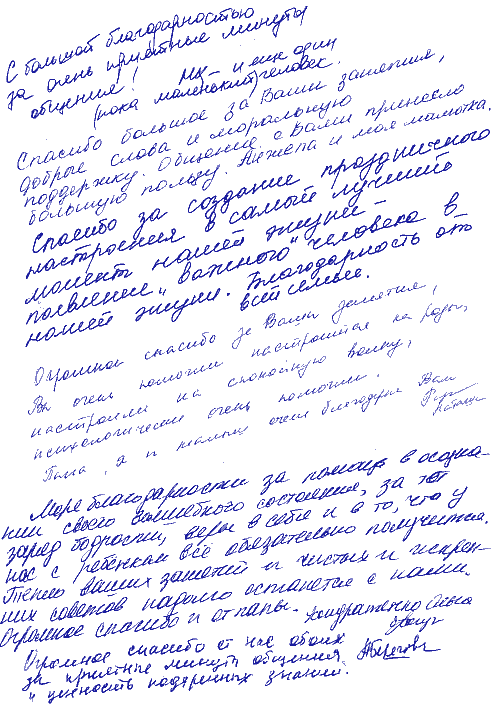 С большой благодарностью
за очень приятные минуты
общения! Мы – и еще один
(пока маленький) человек.
Спасибо большое за Ваши занятия,
добрые слова и моральную
поддержку. Общение с Вами принесло
большую пользу. Анжела и моя мамочка.
Спасибо за создание праздничного
настроения в самый лучший
момент нашей жизни –
появление „важного" человека в
нашей жизни. Благодарность от
всей семьи.
Огромное спасибо за Ваши занятия,
Вы очень помогли настроиться на роды,
настроили на спокойную волну,
психологически очень помогли.
Папа, я и малыш очень благодарны Вам
Наталья
Море благодарности за помощь в осозна-
нии своего волшебного состояния, за тот
заряд бодрости, веры в себя и в то, что у
нас с ребенком всё обязательно получится.
Тепло ваших занятий и чистых и искрен-
них советов надолго останется с нами.
Огромное спасибо и от папы. Кондратенко Ольга
Огромное спасибо от нас обоих
за приятные минуты общения
и ценность подаренных знаний.